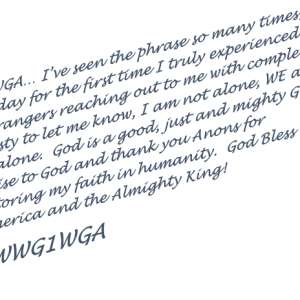 WGA... I've seen the phrase so many times
day for the first time I truly experienced
rangers reaching out to me with comple
sty to let me know, I am not alone, WE a
alone. God is a good, just and mighty G
ise to God and thank you Anons for
toring my faith in humanity. God Bless
erica and the Almighty King!
WWG1WGA